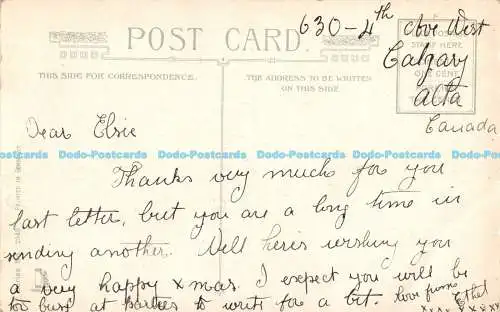 POST CARD.
THIS SIDE FOR CORRESPONDENCE.
THE ADDRESS TO BE WRITTEN
ON THIS SIDE.
STAMP HERE
ONE CENT
630 - 4th Ave West
Calgary
Alta
Canada
Dear Elsie
Dodo-Postcards Dodo-Postcards Dodo-Postcards Dodo-Postcards Dodo-Postcards
Thanks very much for you
last letter, but you are a long time in
sending another. Well here's wishing you
a very happy xmas. I expect you will be
too busy at parties to write for a bit. love from Ethel